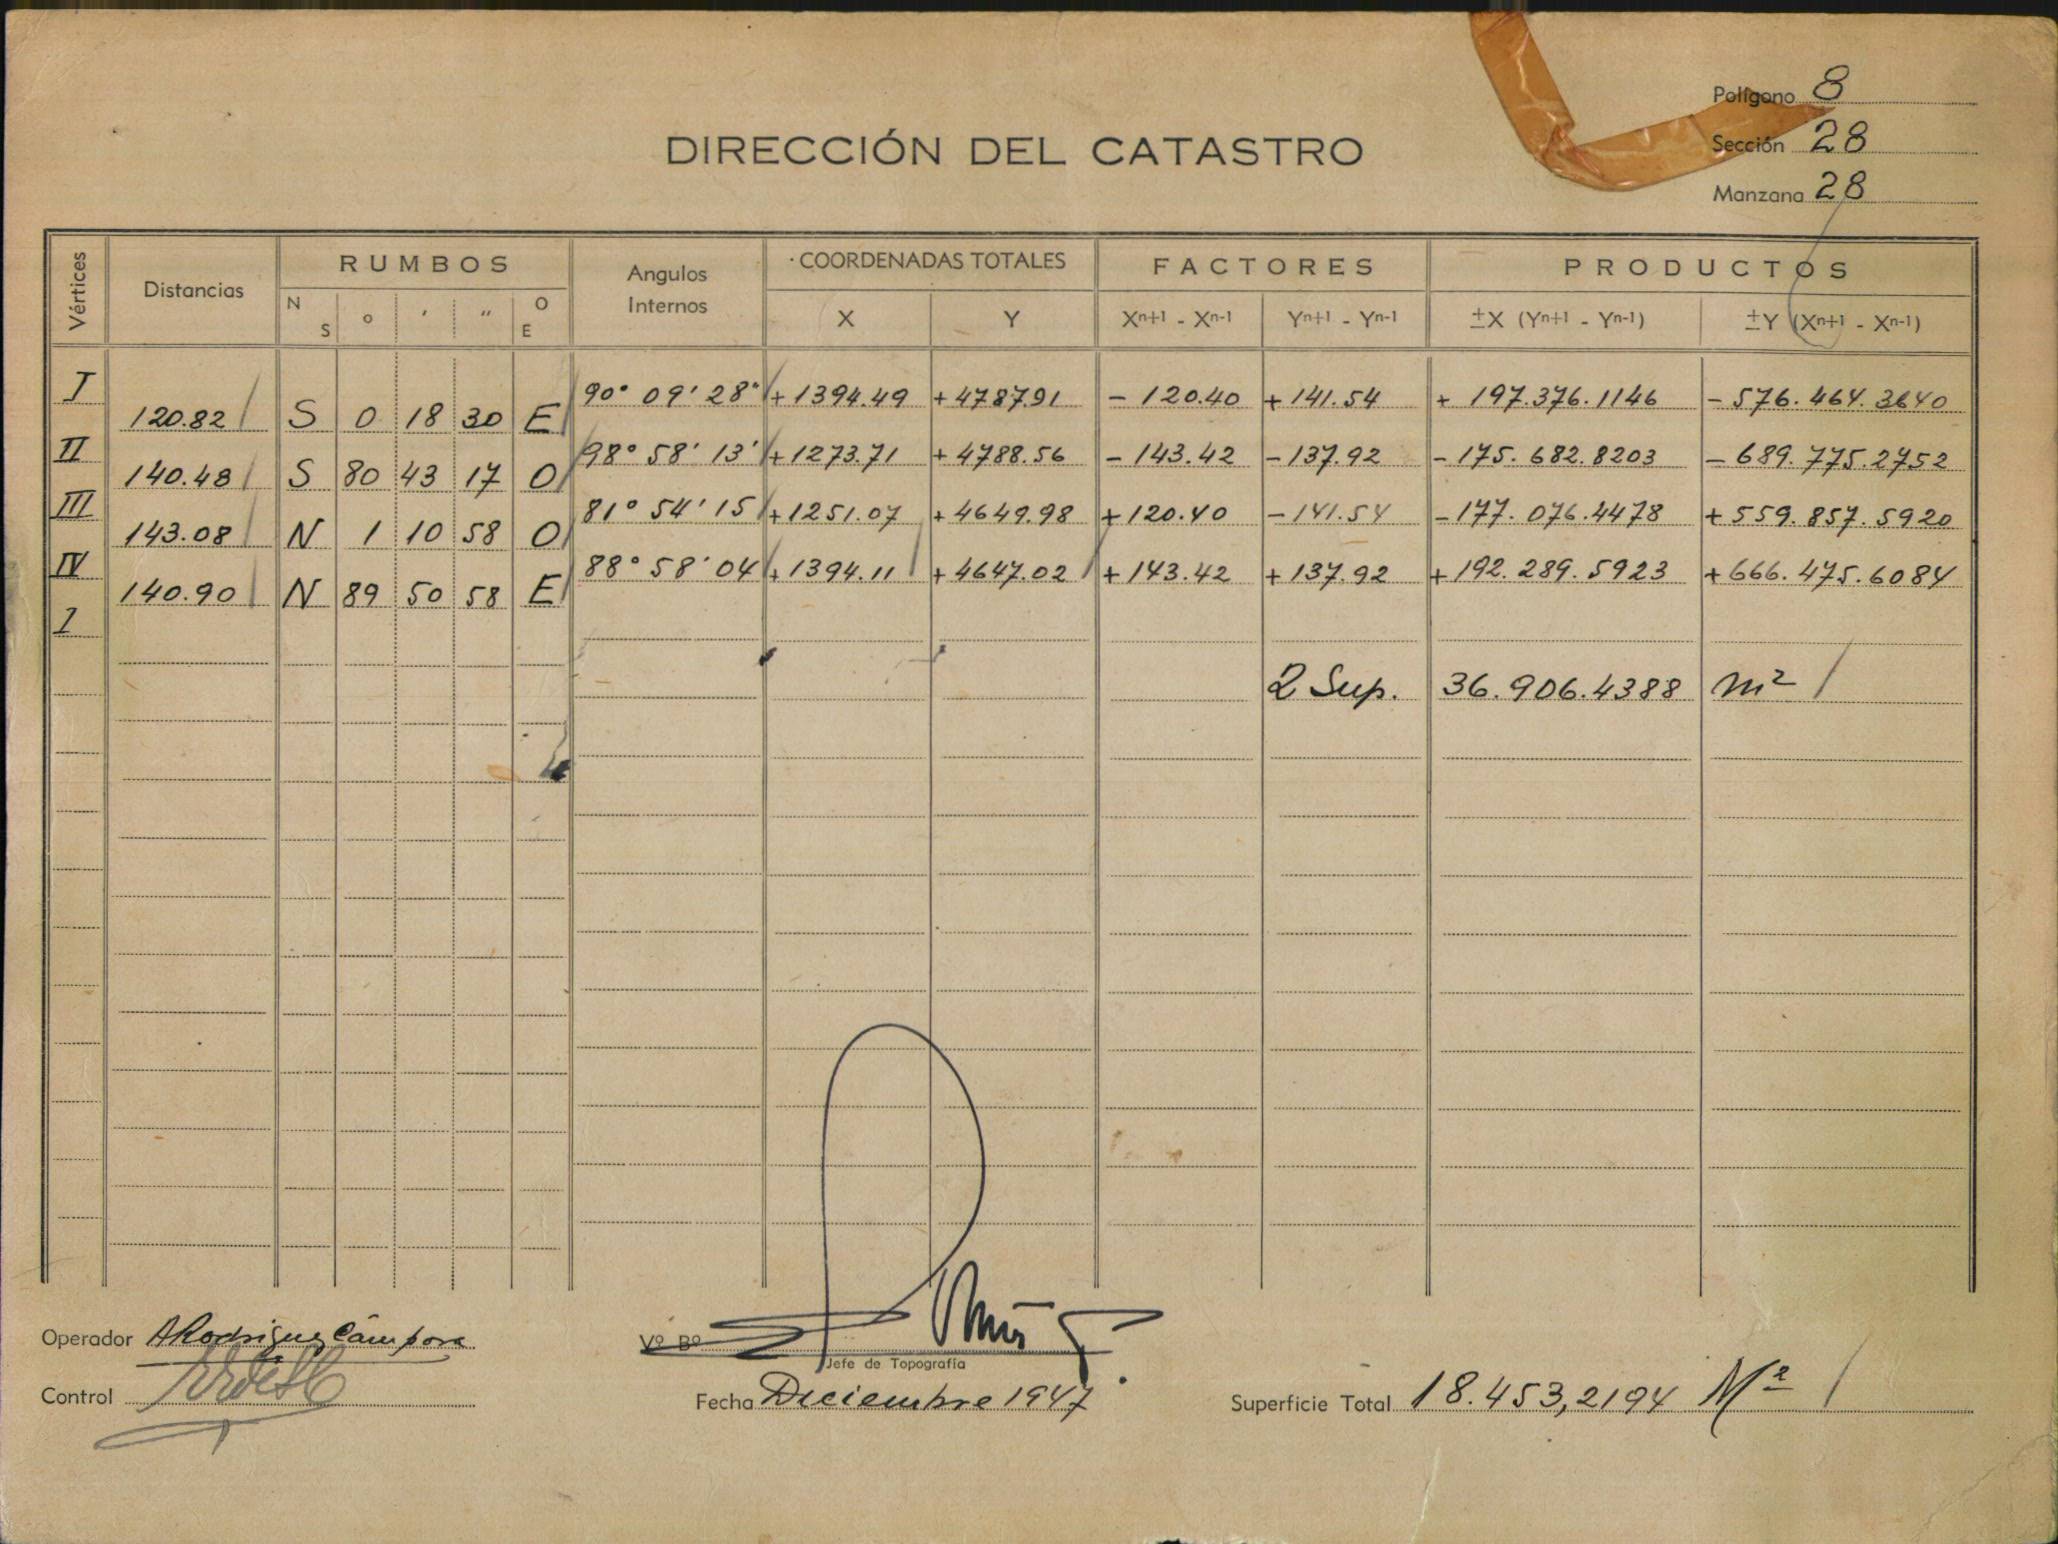 Polígono 8
DIRECCIÓN DEL CATASTRO
Sección 28
Manzana 28
Vértices Distancias RUMBOS Angulos Internos COORDENADAS TOTALES FACTORES PRODUCTOS
N S ° ′ ″ O E X Y Xⁿ⁺¹ - Xⁿ⁻¹ Yⁿ⁺¹ - Yⁿ⁻¹ ±X (Yⁿ⁺¹ - Yⁿ⁻¹) ±Y (Xⁿ⁺¹ - Xⁿ⁻¹)
I 90° 09' 28" +1394.49 +4787.91 -120.40 +141.54 + 197.376.1146 -576.464.3640
120.82 S 0 18 30 E
II 98° 58' 13' +1273.71 +4788.56 -143.42 -137.92 -175.682.8203 -689.775.2752
140.48 S 80 43 17 O
III 81° 54' 15 +1251.07 +4649.98 +120.40 -141.54 -177.076.4478 +559.857.5920
143.08 N 1 10 58 O
IV 88° 58' 04 +1394.11 +4647.02 +143.42 +137.92 +192.289.5923 +666.475.6084
140.90 N 89 50 58 E
I
2 Sup. 36.906.4388 m²
Operador A Rodriguez Cámpora
Vº Bº
Jefe de Topografía
Control
Fecha Diciembre 1947
Superficie Total 18.453,2194 M²